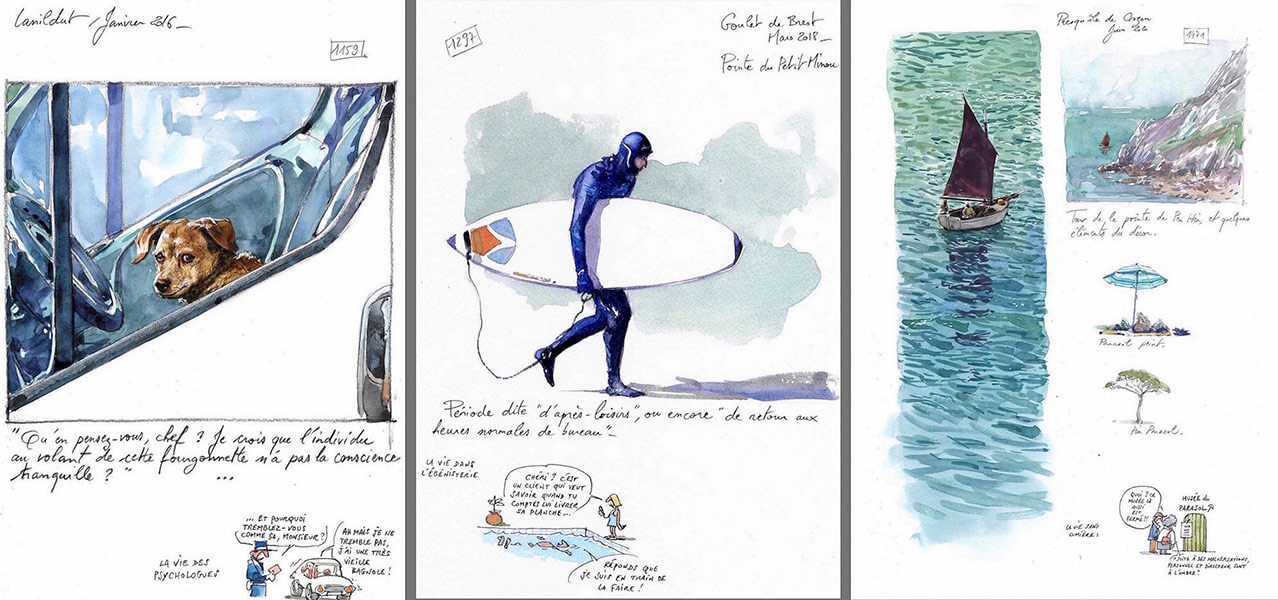 Lanildut, Janvier 2016_
1159
"Qu'en pensez-vous, chef ? Je crois que l'individu
au volant de cette fourgonnette n'a pas la conscience
tranquille ? " ...
LA VIE DES
PSYCHOLOGUES
... ET POURQUOI
TREMBLEZ-VOUS
COMME ÇA, MONSIEUR ?
AH MAIS JE NE
TREMBLE PAS,
J'AI UNE TRÈS
VIEILLE
BAGNOLE !
1297
Goulet de Brest
Mars 2018_
Pointe du Petit Minou
Période dite "d'après-loisirs", ou encore "de retour aux
heures normales de bureau"_
LA VIE DANS
L'ÉBÉNISTERIE
CHÉRI ? C'EST
UN CLIENT QUI VEUT
SAVOIR QUAND TU
COMPTES LUI LIVRER
SA PLANCHE...
RÉPONDS QUE
JE SUIS EN TRAIN DE
LA FAIRE !
Presqu'île de Crozon
Juin
1471
Tour de la pointe de Pen Hir, et quelques
éléments du décor.
Parasol peint.
Pin Parasol.
LA VIE SANS
LUMIÈRE :
QUOI ? CE
MUSÉE LÀ
AUSSI
EST
FERMÉ ?!
MUSÉE du
PARASOL
SUITE À DES MALVERSATIONS,
PERSONNEL ET DIRECTEUR SONT
À L'OMBRE !